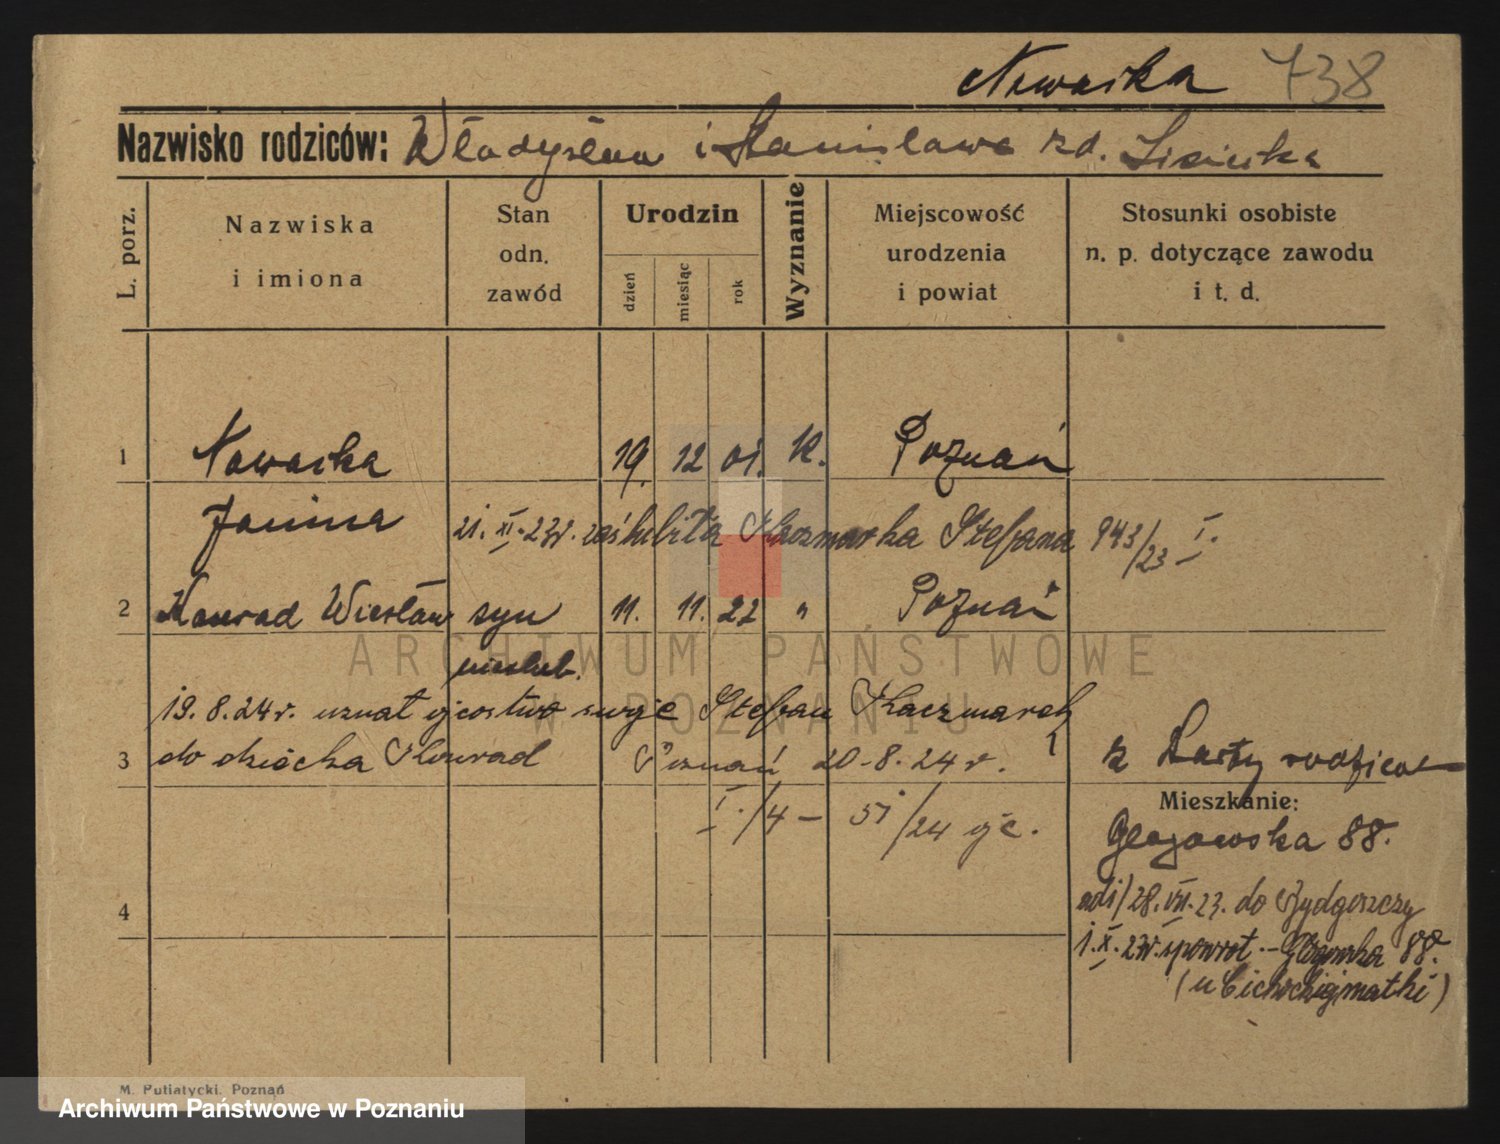 Nowacka 738
Nazwisko rodziców: Władysław i Stanisława zd. Lisiecka
L. porz.
Nazwiska
i imiona
Stan
odn.
zawód
Urodzin
dzień
miesiąc
rok
Wyznanie
Miejscowość
urodzenia
i powiat
Stosunki osobiste
n. p. dotyczące zawodu
i t. d.
1 Nowacka 19. 12 01. K. Poznań
Janina 21. XI. 23r. zaślubiła Kaczmarka Stefana 943/23 I.
2 Konrad Wiesław syn 11. 11. 22 " Poznań
nieślub.
19.8.24r. uznał ojcostwo swoje Stefan Kaczmarek
3 do dziecka Konrad Poznań 20-8.24r. z karty rodziców
I./4 – 51/24
Mieszkanie:
Głogowska 88.
4 28. VII. 23. do Bydgoszczy
1. X. 23r. spowrot. - Głogowska 88.
(u matki)
M. Putiatycki, Poznań
ARCHIWUM PAŃSTWOWE
W POZNANIU
Archiwum Państwowe w Poznaniu